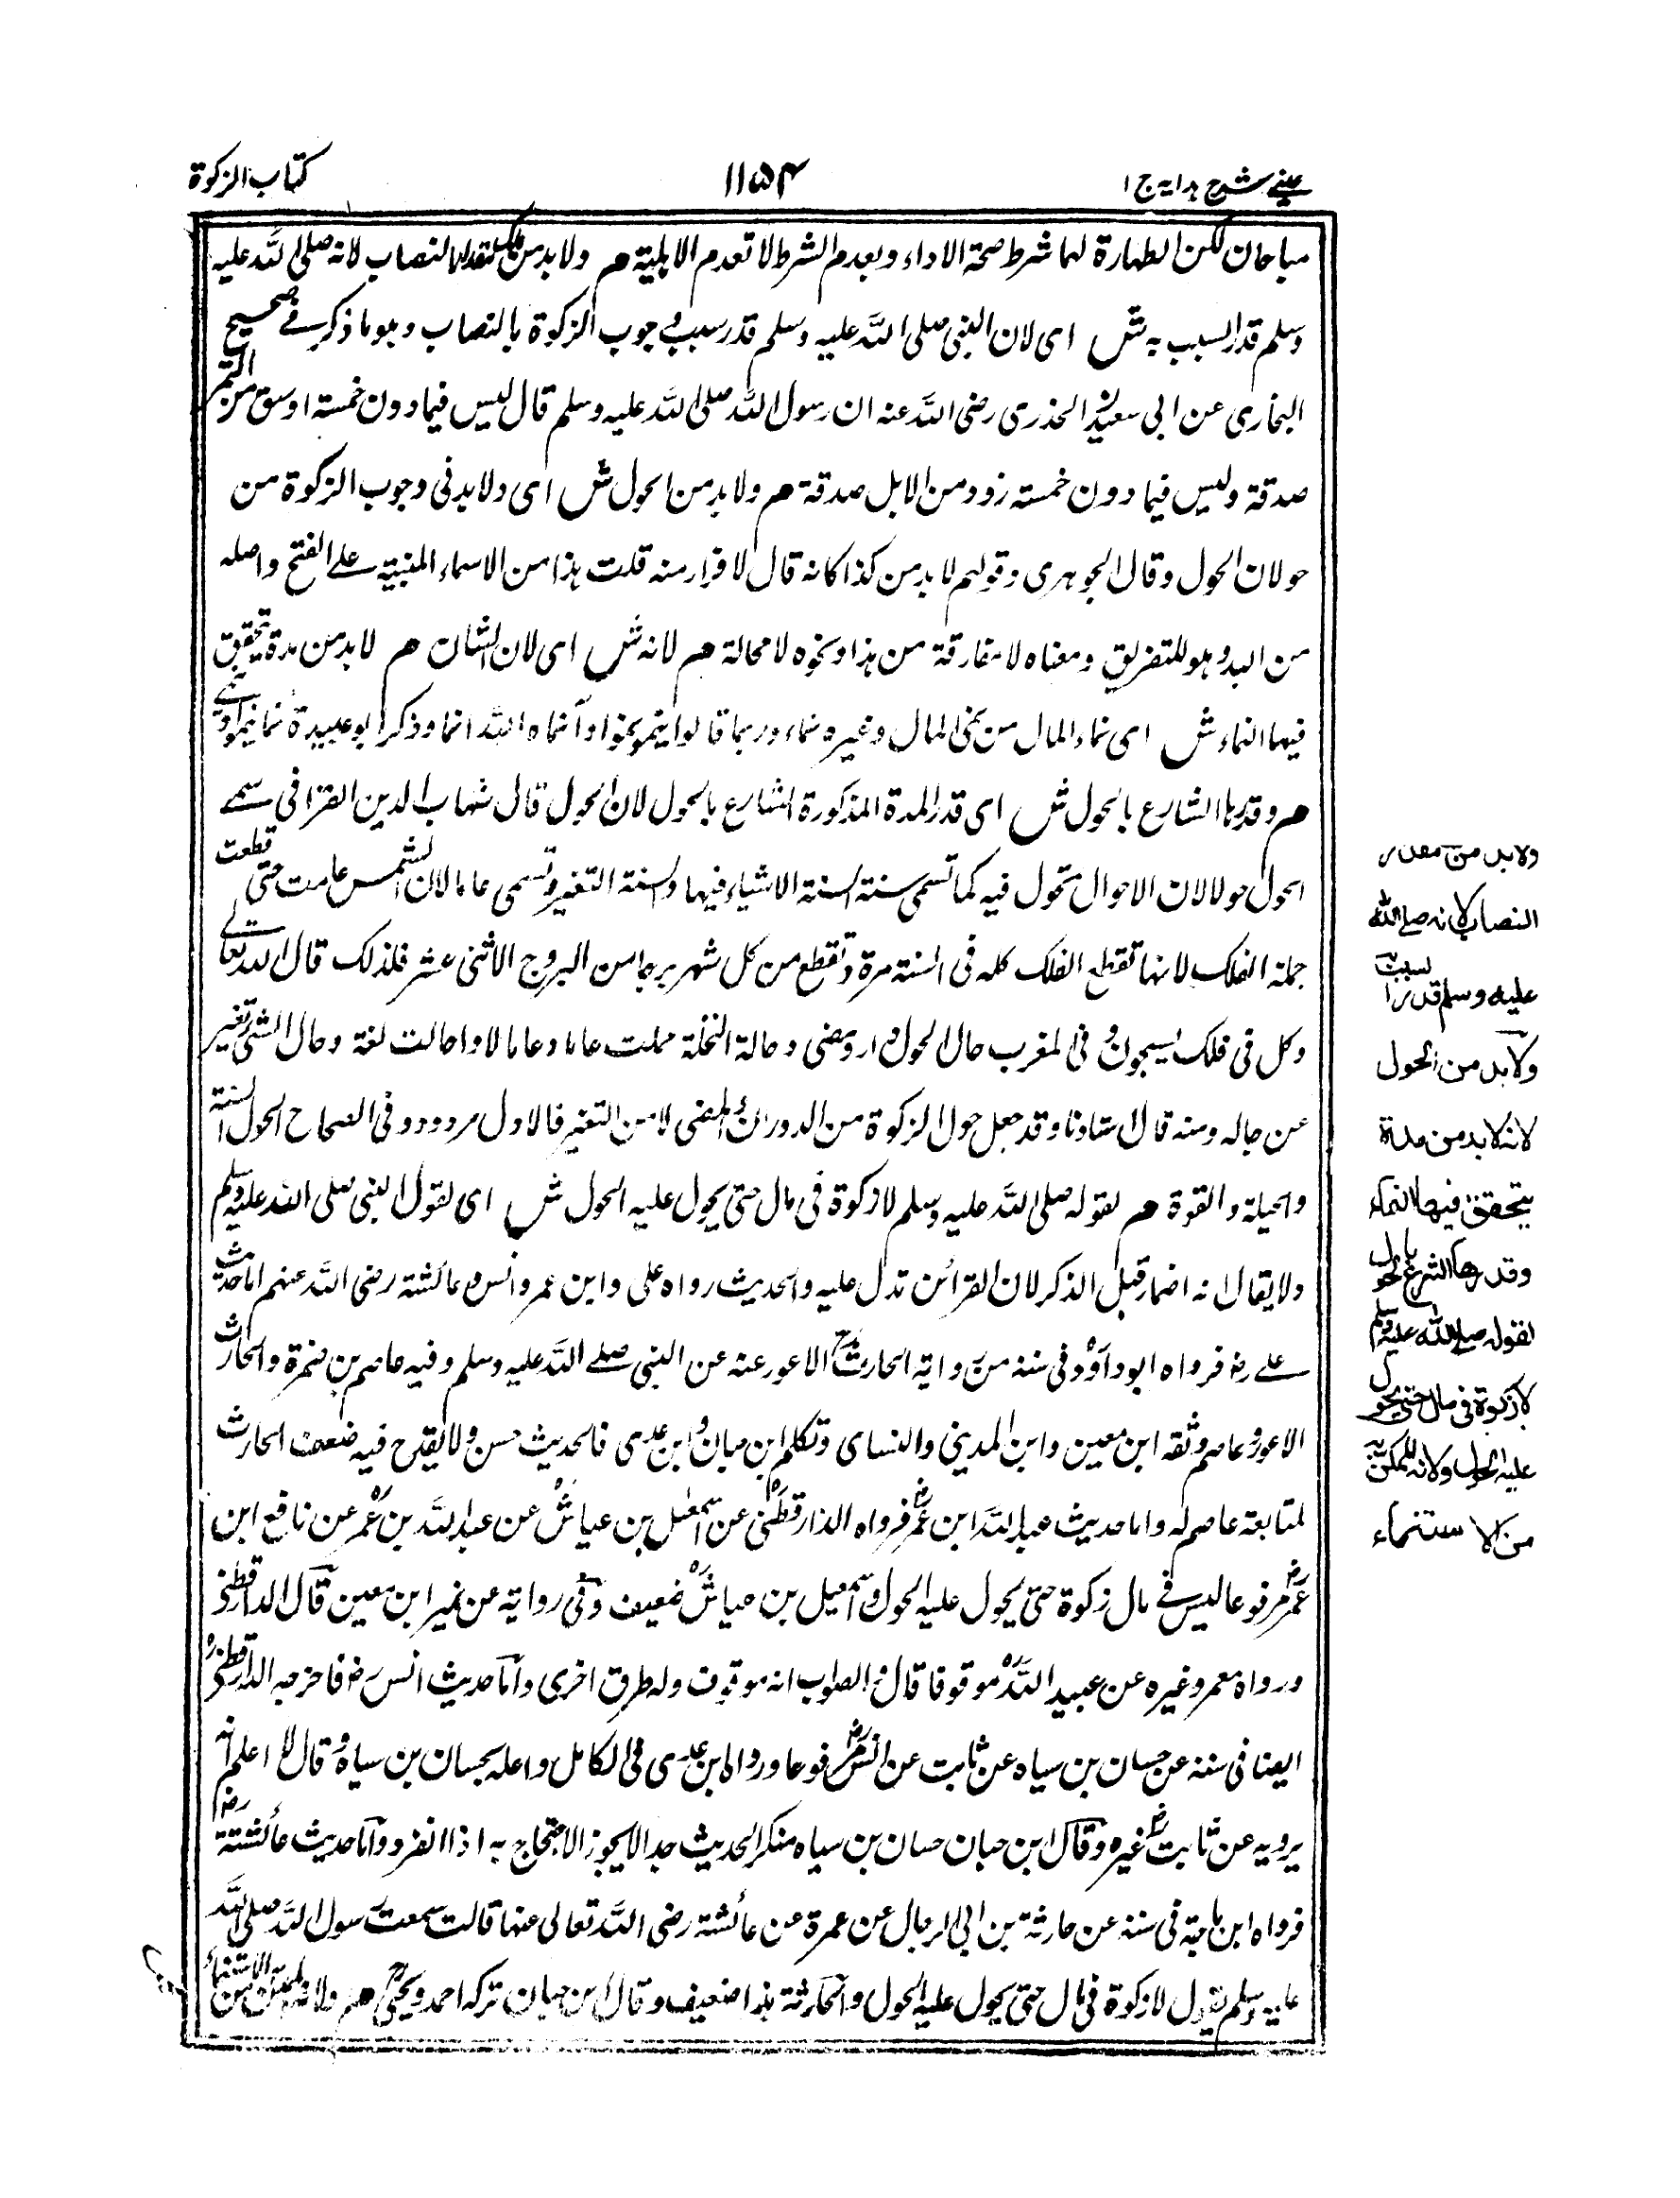 عينى شرح هدايه ج ١
١١٥٤
كتاب الزكوة
مباحان لكن الطهارة لهما شرط صحة الاداء وبعدم الشرط لا تعدم الاهلية هـ ولا بد من ملك مقدار النصاب لانه صلى الله عليه
وسلم قدر السبب به ش اى لان النبى صلى الله عليه وسلم قدر سبب وجوب الزكوة بالنصاب وهو ما ذكر فى صحيح
البخارى عن ابى سعيد الخدرى رضى الله عنه ان رسول الله صلى الله عليه وسلم قال ليس فيما دون خمسة اوسق من التمر
صدقة وليس فيما دون خمسة زود من الابل صدقة هـ ولا بد من الحول ش اى ولا بد فى وجوب الزكوة من
حولان الحول وقال الجوهرى وقولهم لا بد من كذا كانه قال لا فرار منه قلت هذا من الاسماء المبنية على الفتح واصله
من البد وهو للتفريق ومعناه لا مفارقة من هذا ونحوه لا محالة هـ لانه ش اى لان الشان هـ لا بد من مدة يتحقق
فيها النماء ش اى نماء المال من نمى المال وغيره نماء وربما قالوا ينمو نموا وانماه الله انما وذكر ابو عبيدة نما ينمو وينمى
هـ وقدرها الشارع بالحول ش اى قدر المدة المذكورة الشارع بالحول لان الحول قال شهاب الدين القرافى سمى
الحول حولا لان الاحوال تحول فيه كما تسمى سنة لسنة الاشياء فيها والسنة التغير وتسمى عاما لان الشمس عامت حتى قطعت
جملة الفلك لانها تقطع الفلك كله فى السنة مرة وتقطع من كل شهر برجا من البروج الاثنى عشر فلذلك قال الله تعالى
وكل فى فلك يسبحون وفى المغرب حال الحول دار ومضى وحالة النخلة حملت عاما وعاما لا واحالت لغة وحال الشئ تغير
عن حاله ومنه قال استاذنا وقد جعل حول الزكوة من الدوران والمضى لا من التغير فالاول مردود وفى الصحاح الحول السنة
والحيلة والقوة هـ لقوله صلى الله عليه وسلم لا زكوة فى مال حتى يحول عليه الحول ش اى لقول النبى صلى الله عليه وسلم
ولا يقال انه اضمار قبل الذكر لان القرائن تدل عليه والحديث رواه على وابن عمر وانس وعائشة رضى الله عنهم اما حديث
على رض فرواه ابو داؤد فى سننه من رواية الحارث الاعور عنه عن النبى صلى الله عليه وسلم وفيه عاصم بن ضمرة والحارث
الاعور وعاصم وثقه ابن معين وابن المدينى والنساى وتكلم ابن حبان وابن عدى فالحديث حسن ولا يقدح فيه ضعف الحارث
لمتابعة عاصم له واما حديث عبد الله ابن عمر فرواه الدارقطنى عن اسمعيل بن عياش عن عبد الله بن عمر عن نافع ابن
عمر مرفوعا ليس فى مال زكوة حتى يحول عليه الحول واسمعيل بن عياش ضعيف وفى رواية عن غير ابن معين قال الدارقطنى
ورواه معمر وغيره عن عبيد الله موقوفا قال والصواب انه موقوف وله طرق اخرى واما حديث انس رض فاخرجه الدارقطنى
ايضا فى سننه عن حسان بن سياه عن ثابت عن انس مرفوعا ورواه ابن عدى فى الكامل واعله بحسان بن سياه وقال لا اعلم انه
يرويه عن ثابت غيره وقال ابن حبان حسان بن سياه منكر الحديث جدا لا يجوز الاحتجاج به اذا انفرد واما حديث عائشة رض
فرواه ابن ماجة فى سننه عن حارثة بن ابى الرجال عن عمرة عن عائشة رضى الله تعالى عنها قالت سمعت رسول الله صلى الله
عليه وسلم يقول لا زكوة فى مال حتى يحول عليه الحول والحارثة هذا ضعيف وقال ابن حبان تركه احمد ويحيى هـ ولانه الممكن من الاستنماء
ولا بد من مقدار
النصاب لانه صلى الله
عليه وسلم قدر السبب به
ولا بد من الحول
لانه لا بد من مدة
يتحقق فيها النماء
وقدرها الشرع بالحول
لقوله صلى الله عليه وسلم
لا زكوة فى مال حتى يحول
عليه الحول ولانه الممكن به
من الاستنماء